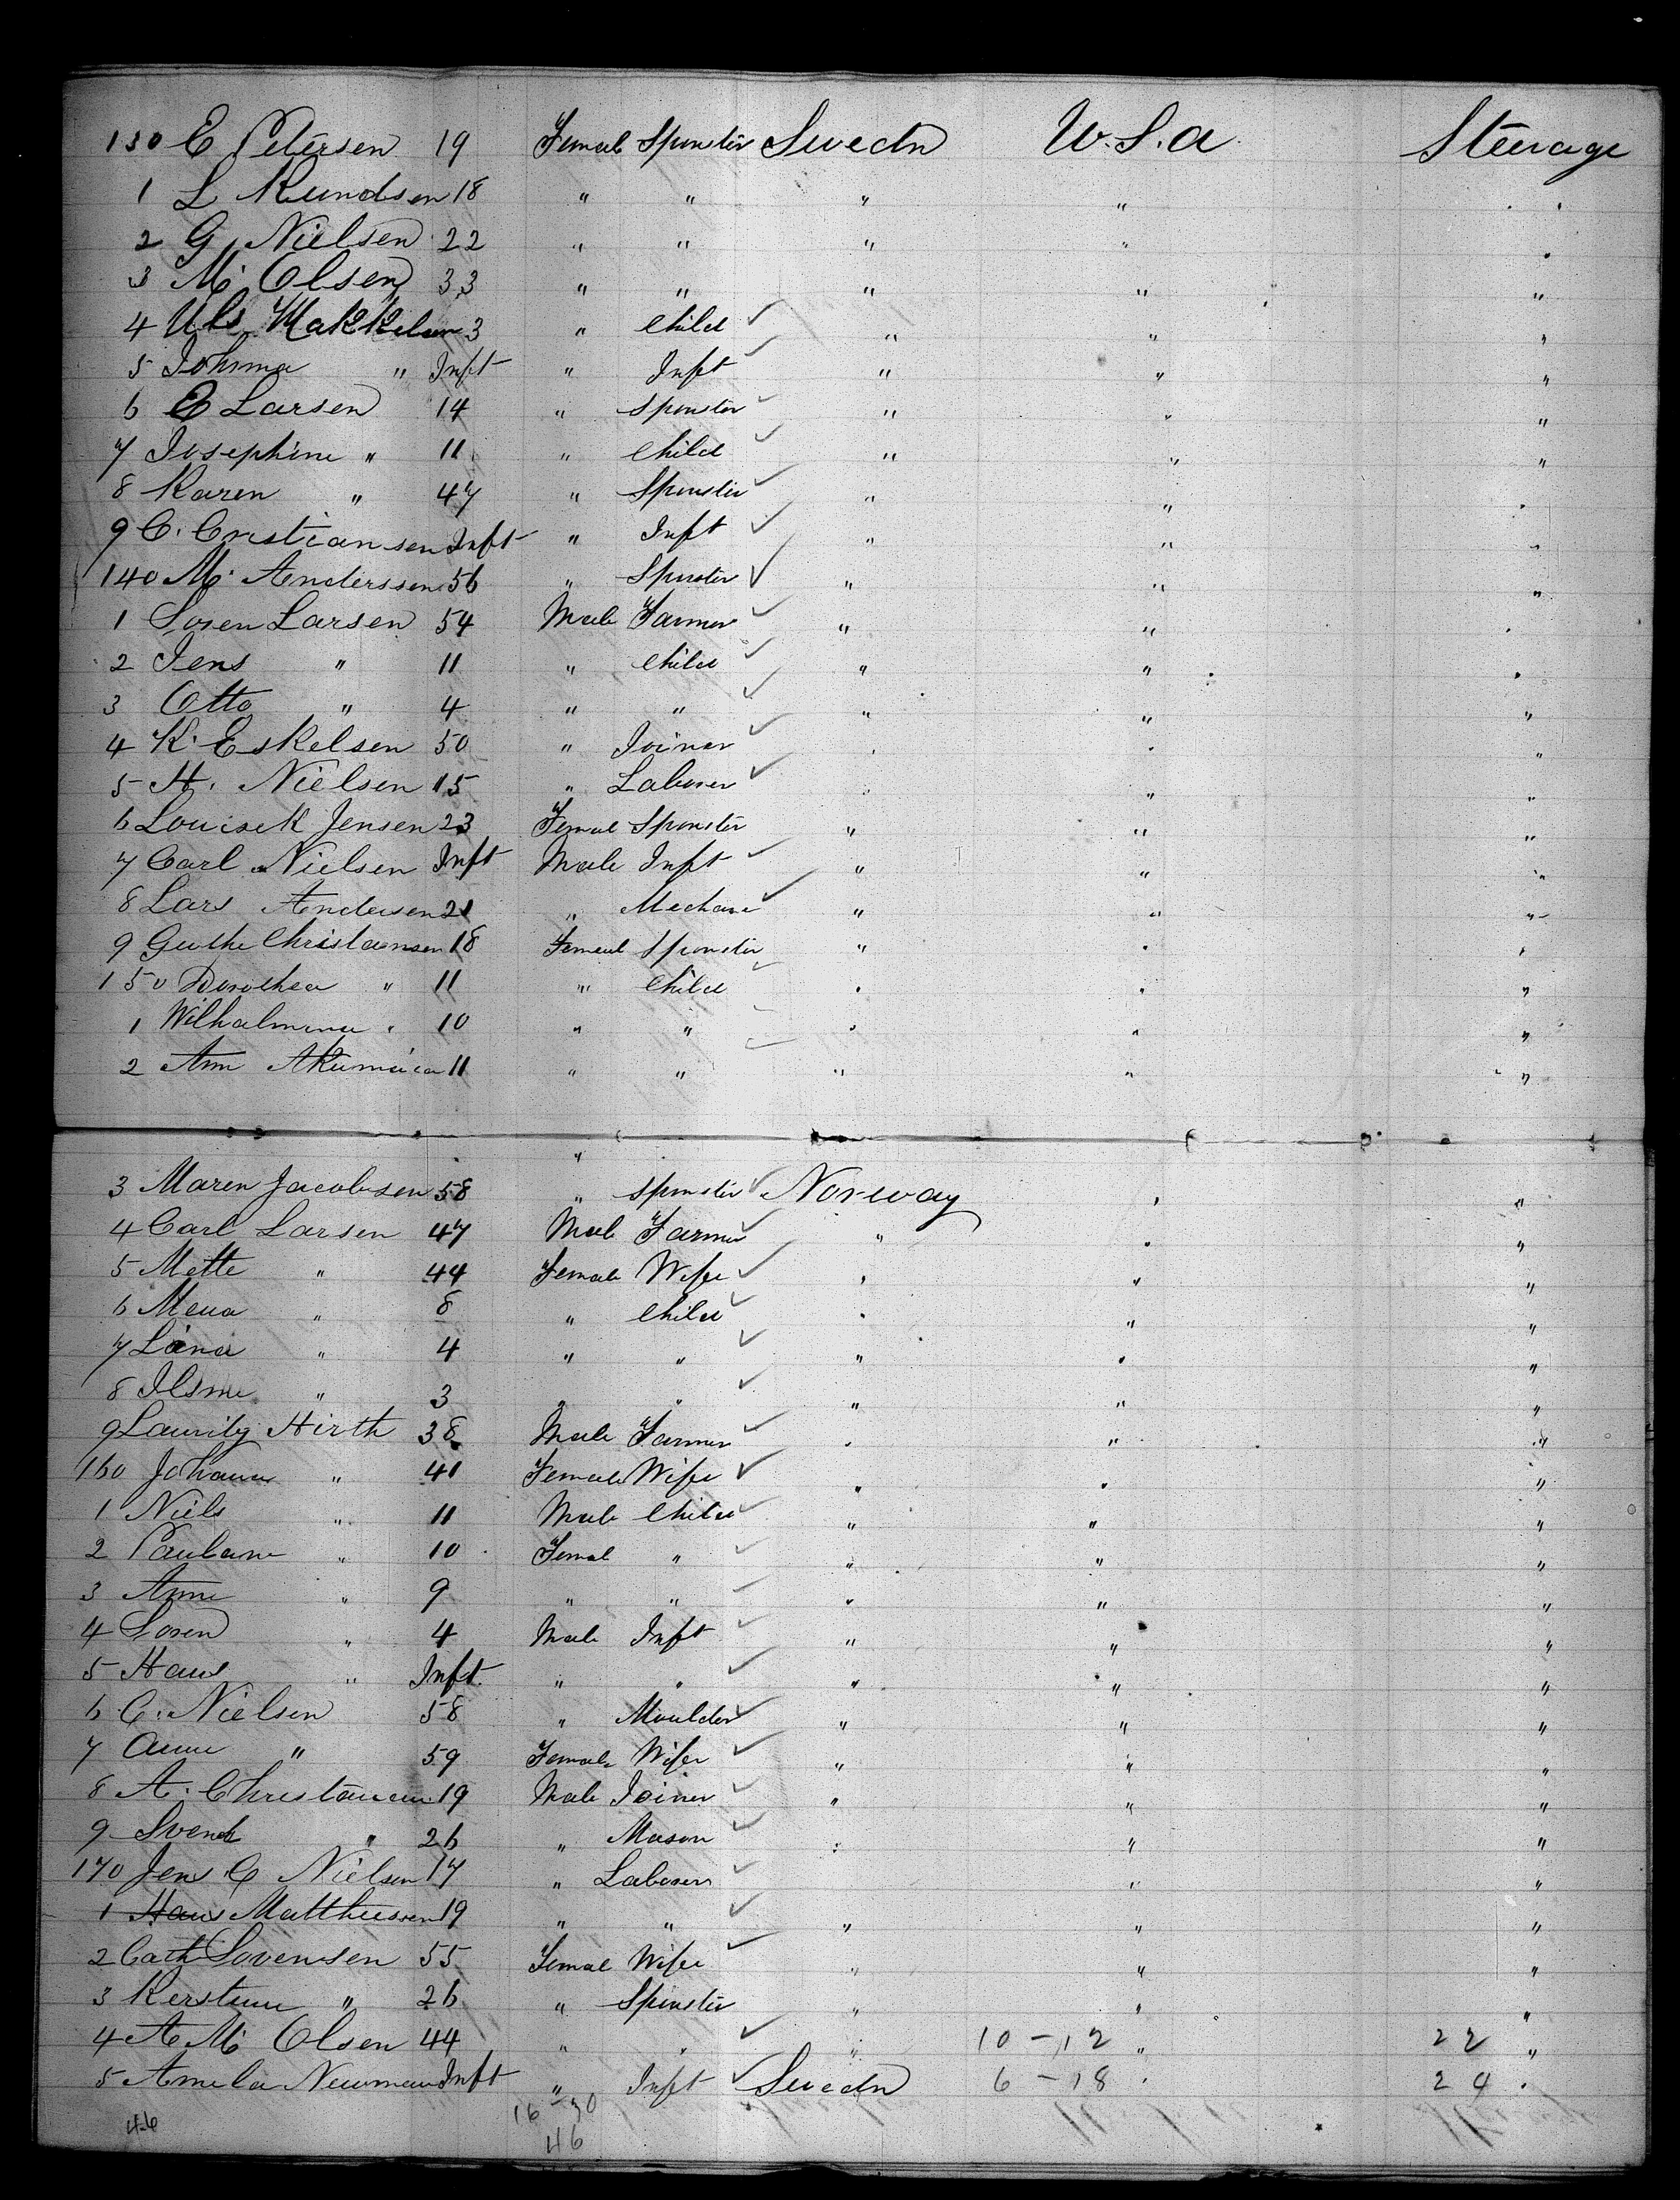 130 E Petersen 19 Female Spinster Swedn U.S.a Steerage
1 L Kundsen 18 " " " "
2 G. Nielsen 22 " " " "
3 M. Olsen 33 " " " " "
4 Makkelsen 3 " Child " " "
5 Johnna " Inft " Inft " " "
6 E Larsen 14 " Spinster " " "
7 Josephine " 11 " Child " " "
8 Karen " 47 " Spinster " "
9 C. Cristiansen Inft " Inft " " "
140 M. Anderssen 56 " Spinster " " "
1 Soren Larsen 54 Male Farmer " "
2 Jens " 11 " Child " "
3 Otto " 4 " " " " "
4 K. Eskelsen 50 " Joiner "
5 H. Nielsen 15 " Laborer " "
6 Louise K Jensen 23 Femal Spinster " " "
7 Carl Nielsen Inft Male Inft " " "
8 Lars Andersen 21 " Mechanic " " "
9 Christansen 18 Femeal Spinster " "
150 Dorothea " 11 " Child "
1 Wilhalmina " 10 " " " " "
2 Ann 11 " " " " "
"
3 Maren Jacobsen 58 " Spinster Norway " "
4 Carl Larsen 47 Male Farmer " "
5 Mette " 44 Female Wife " " "
6 Mena " 8 " Child " "
7 Lina " 4 " " " " "
8 " 3 " " " " "
9 Hirth 38 Male Farmer " " "
160 Johann " 41 Female Wife " " "
1 Niels " 11 Male Child " " "
2 " 10 Femal " " " "
3 Anne " 9 " " " " "
4 Soren " 4 Male Inft " " "
5 Hans " Inft " " " " "
6 C. Nielsen 58 " Moulder " " "
7 Anne " 59 Female Wife " " "
8 A. 19 Male Joiner " " "
9 Svend " 26 " Mason " " "
170 Jens C Nielsen 17 " Laborer " "
1 Hans Matthiessen 19 " " " " "
2 Cath Sorensen 55 Femal Wife " " "
3 " 26 " Spinster " " "
4 A M. Olsen 44 " " " 10 - 12 " 22 "
5 Amela Newman Inft " Inft Swedn 6 - 18 " 24 "
46 16 - 30
46